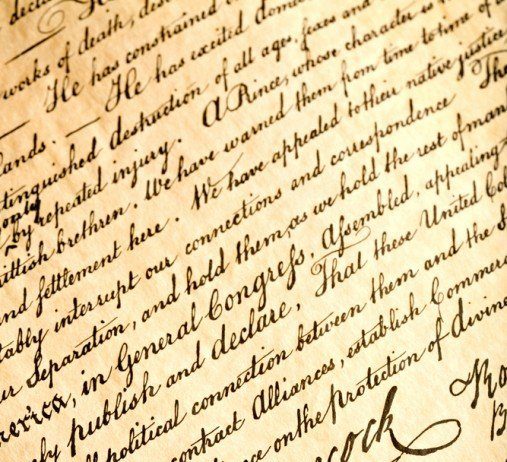 works of death, des
— He has constrained o
ands. — He has excited domes
tinguished destruction of all ages, sexes and
only
by repeated injury. A Prince, whose character is
Brittish brethren. We have warned them from time to time of
and settlement here. We have appealed to their native justice
tably interrupt our connections and correspondence The
ur Separation, and hold them, as we hold the rest of mank
merica, in General Congress, Assembled, appealing
ly publish and declare, That these United Col
ll political connection between them and the S
contract Alliances, establish Commerc
nce on the protection of divine
cock